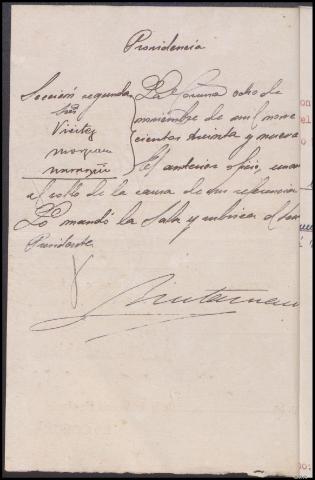 Providencia
Sección segunda
Sres
Vieitez
La Coruña ocho de
noviembre de mil nove
cientos treinta y nueve
el anterior oficio, unase
al rollo de la causa de su referencia
Lo mandó la Sala y rubrica el Señor
Presidente